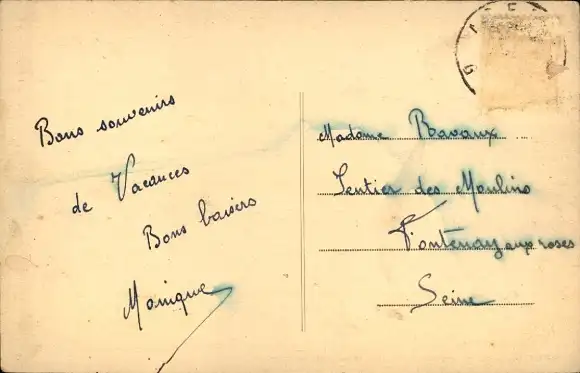 Bons souvenirs
de Vacances
Bons baisers
Monique
Madame Ravaux
Sentier des Moulins
Fontenay aux roses
Seine